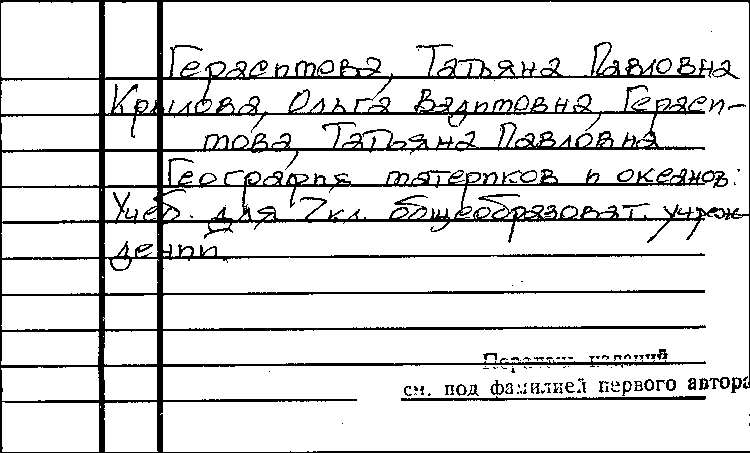 Герасимова, Татьяна Павловна
Крылова, Ольга Вадимовна, Гераси-
мова, Татьяна Павловна
География материков и океанов:
Учеб. для 7 кл. общеобразоват. учреж-
дений.
Перечень изданий
см. под фамилией первого автора